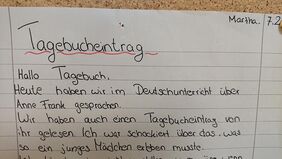 Martha. 7.2
Tagebucheintrag
Hallo Tagebuch,
Heute haben wir im Deutschunterricht über
Anne Frank gesprochen.
Wir haben auch einen Tagebucheintrag von
ihr gelesen. Ich war schockiert über das, was
so ein junges Mädchen erleben musste.